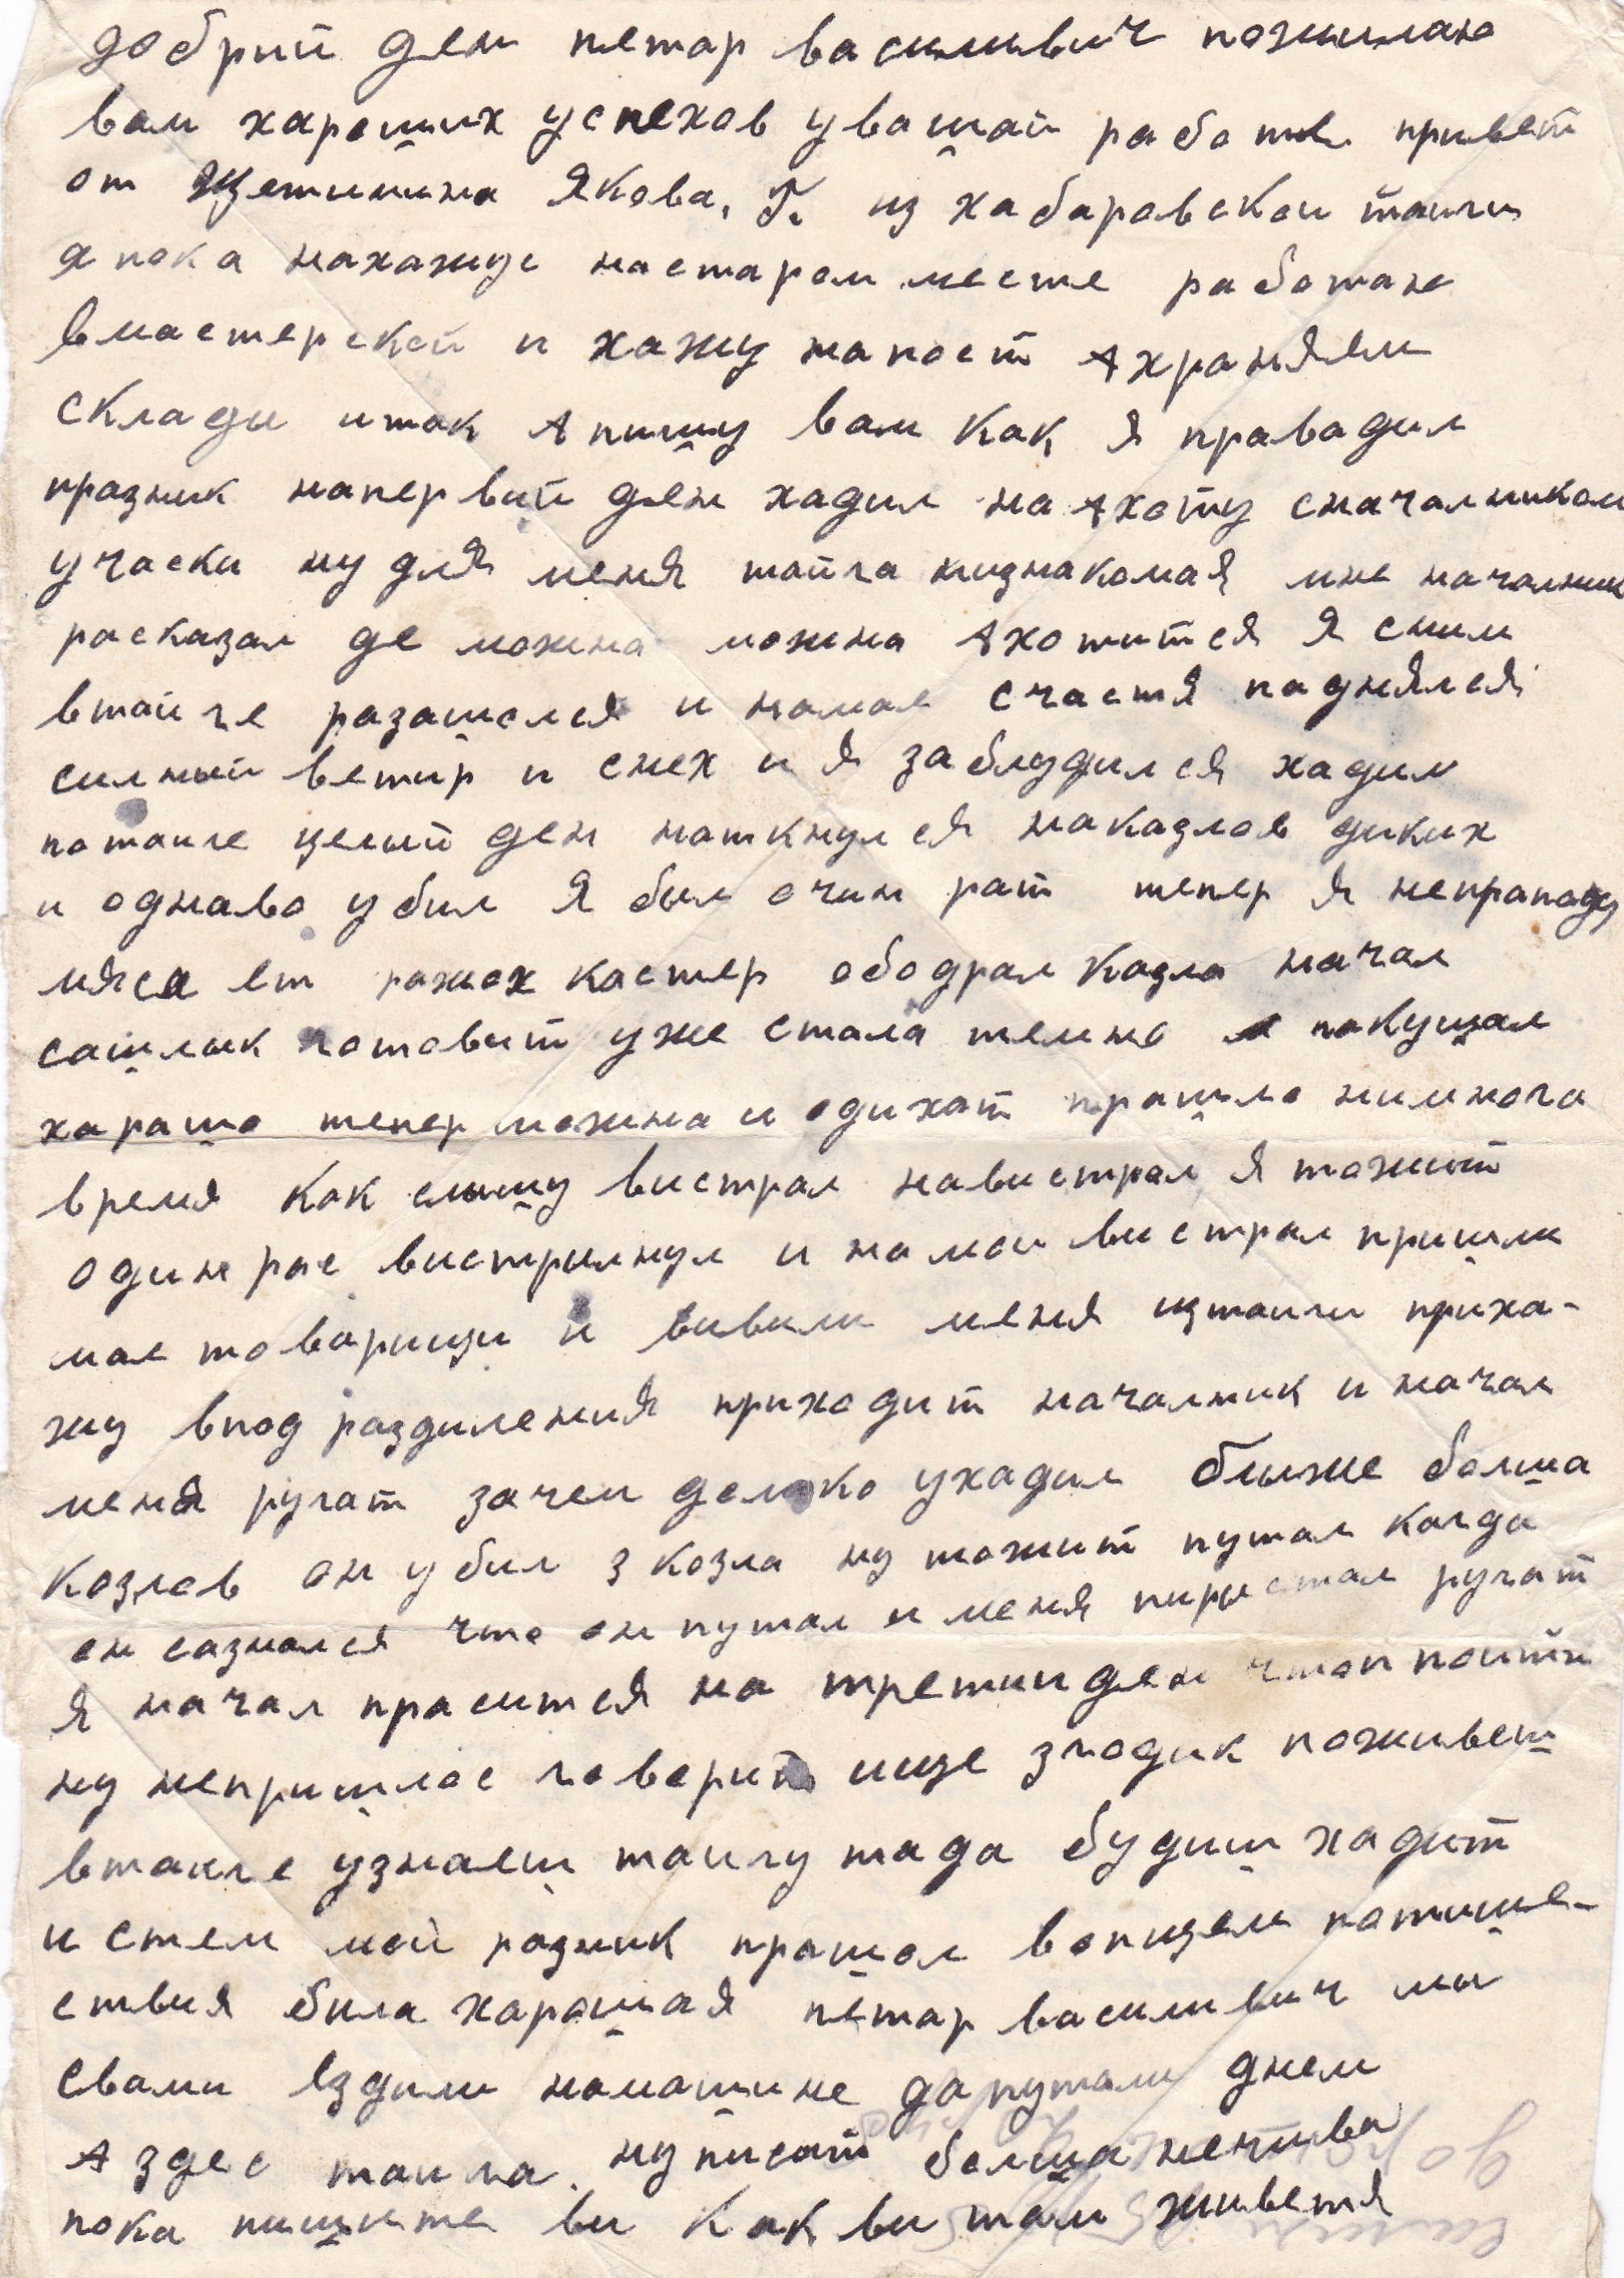 добрий ден петар василивич пожилаю
вам хароших успехов увашай работе привет
от Щетинина Якова. Г. из хабаровской тайги
я пока нахажус настаром месте работаю
вмастерской и хажу напост Ахраняем
склади итак Апишу вам как яправадил
празник напервий ден хадил на Ахоту сначалником
участка ну для меня тайга низнакомая мне началник
расказал де можна можна Ахотится я сним
втайге разашолся и намое счастя паднялся
силный ветир и снех и я заблудился хадил
потайге целый ден наткнулся наказлов диких
и однаво убил я был очин рат тепер я непрападу
мяса ет ражох кастер ободрал казла начал
сашлык готовит уже стала темно и покушал
харашо тепер можна и одихат прашло нимнога
время как слышу вистрал навистрал я тожит
один рас вистрилнул и намои вистрал пришли
мое товарищи и вивили меня изтаиги приха-
жу вподраздиления приходит началник и начал
меня ругат зачем далоко ухадил ближе болша
козлов он убил 3 козла ну тожит путал когда
он сазнался что он путал и меня пиристал ругат
я начал праситса на третии ден чтоп поити
ну непришлос говорит ище згодик поживеш
втаиге узнаеш таигу тада будиш хадит
и стем мой разник прашол вопщем потише-
ствия била харошая петар василивич ми
свами ездили намашине да путали днем
А здес таига. ну писат болша нечива
пока пишите ви как ви там живетя